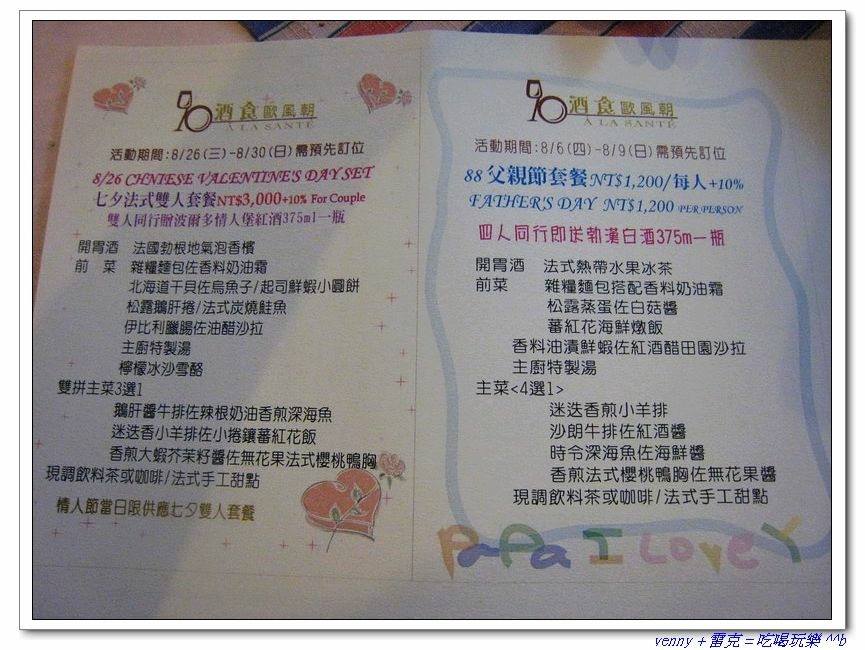 酒食歐風朝
À LA SANTÉ
活動期間:8/26(三)-8/30(日)需預先訂位
8/26 CHNTESE VALENTINE'S DAY SET
七夕法式雙人套餐NT$3,000+10% For Couple
雙人同行贈波爾多情人堡紅酒375ml一瓶
開胃酒 法國勃根地氣泡香檳
前 菜 雜糧麵包佐香料奶油霜
北海道干貝佐烏魚子/起司鮮蝦小圓餅
松露鵝肝捲/法式炭燒鮭魚
伊比利臘腸佐油醋沙拉
主廚特製湯
檸檬冰沙雪酪
雙拼主菜3選1
鵝肝醬牛排佐辣根奶油香煎深海魚
迷迭香小羊排佐小捲鑲蕃紅花飯
香煎大蝦芥茉籽醬佐無花果法式櫻桃鴨胸
現調飲料茶或咖啡/法式手工甜點
情人節當日限供應七夕雙人套餐
酒食歐風朝
À LA SANTÉ
活動期間:8/6(四)-8/9(日)需預先訂位
88父親節套餐NT$1,200/每人+10%
FATHER'S DAY NT$1,200 PER PERSON
四人同行即送勃漢白酒375m一瓶
開胃酒 法式熱帶水果冰茶
前菜 雜糧麵包搭配香料奶油霜
松露蒸蛋佐白菇醬
蕃紅花海鮮燉飯
香料油漬鮮蝦佐紅酒醋田園沙拉
主廚特製湯
主菜<4選1>
迷迭香煎小羊排
沙朗牛排佐紅酒醬
時令深海魚佐海鮮醬
香煎法式櫻桃鴨胸佐無花果醬
現調飲料茶或咖啡/法式手工甜點
PaPa I LoveY
venny + 雷克 = 吃喝玩樂 ^^b